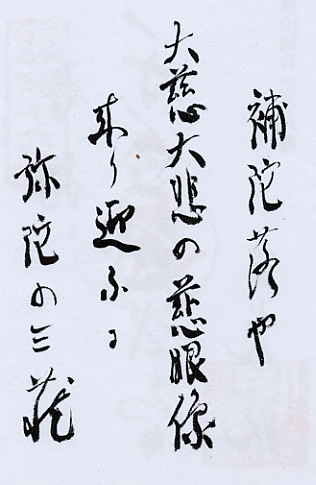 補陀落や
大慈大悲の慈眼像
来り迎ふに
弥陀の三蔵